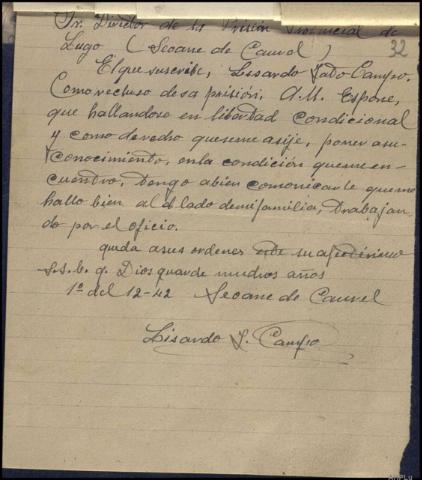 Sr. Director de la Prisión Provincial de
Lugo (Seoane de Caurel)
32
El que suscribe, Lisardo Campo.
Como recluso desa prisión, A.U. Espone,
que hallandose en libertad condicional
y como derecho queseme asije, poner asu
conocimiento, enla condición queme en-
cuentro, tengo abien comunicarle queme
hallo bien al dlado demifamilia, trabajan
do por el oficio.
queda asus ordenes su
s.s.q. Dios guarde muchos años
1º del 12-42 Seoane de Caurel
Lisardo Campo